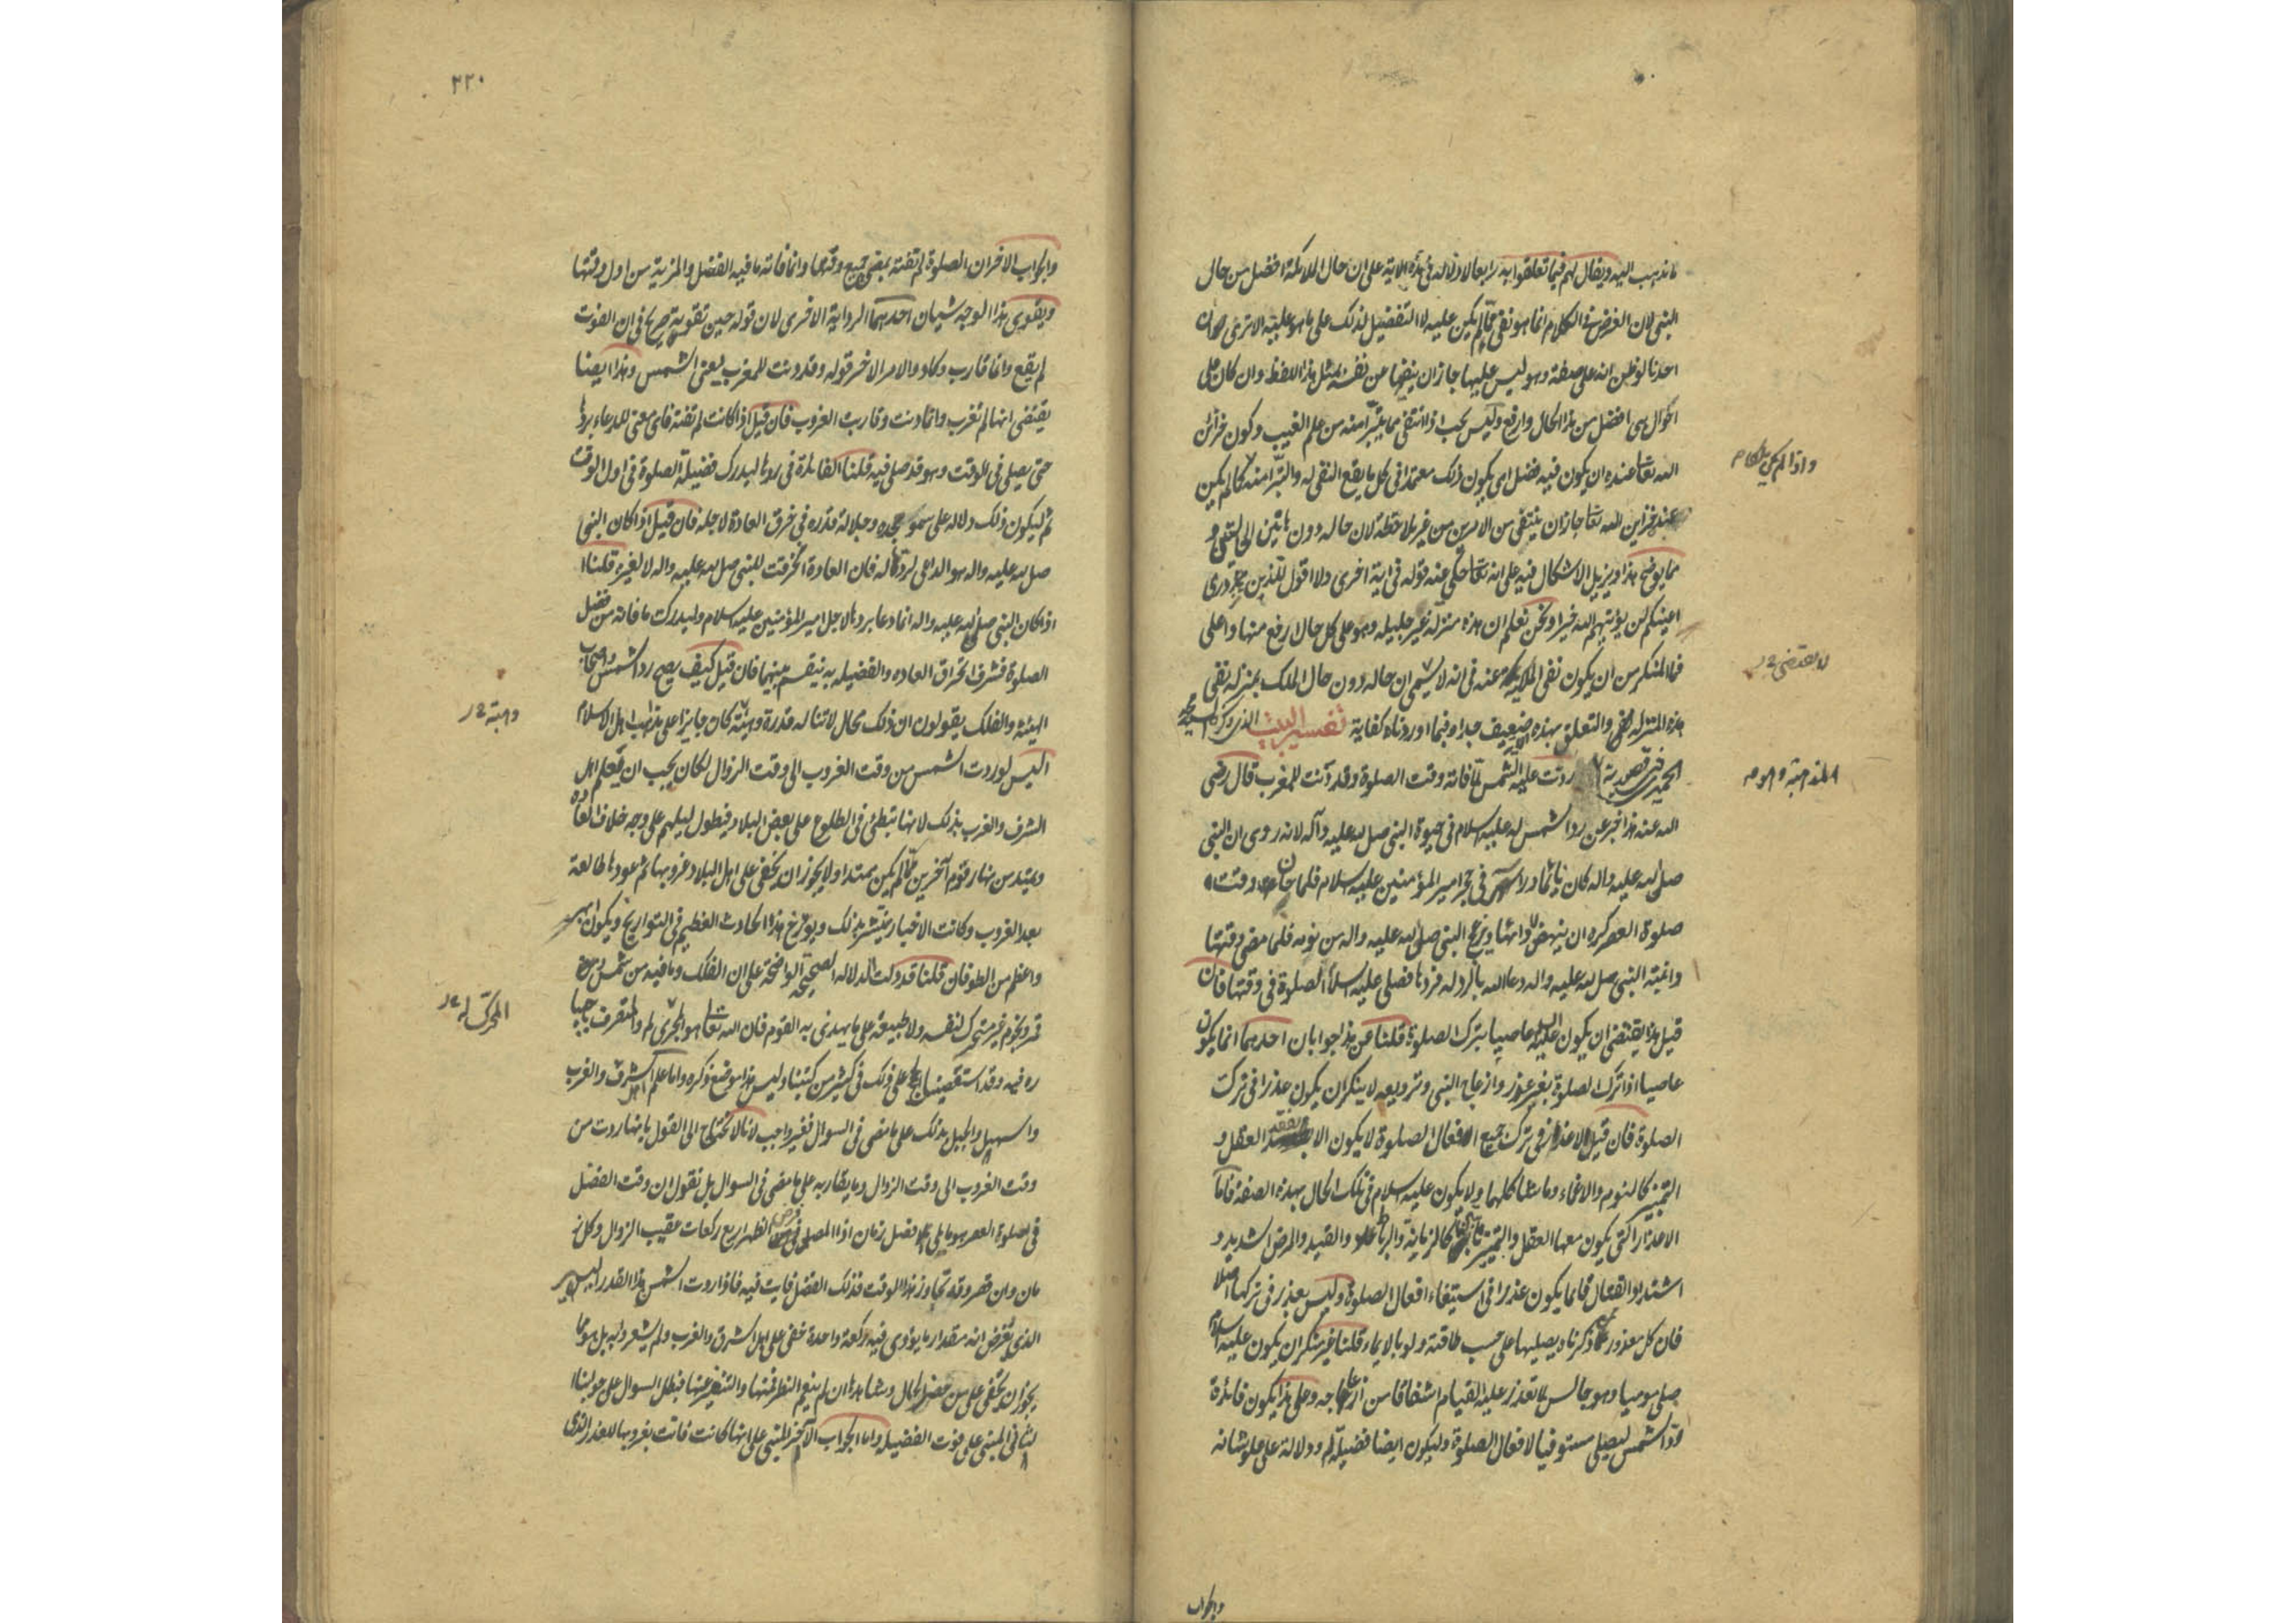 ما ذهب اليه ويقال لهم فيما تعلقوا به رابعا لا دلالة في هذه الاية على ان حال الملائكة افضل من حال
النبي لان الغرض في الكلام انما هو نفي ما لم يكن عليه لا التفضيل لذلك على ما هو عليه الا ترى ان
احدنا لو ظن انه على صفة وهو ليس عليها جاز ان ينفيها عن نفسه بمثل هذا اللفظ وان كان على
احوال هي افضل من هذا الحال وارفع وليس يجب اذا انتفى مما تبرأ منه من علم الغيب وكون خزائن
الله تعا عنده ان يكون فيه فضل ان يكون ذلك معتمدا في كل ما يقع النفي له والتبرأ منه كما لم يكن
عنده خزاين الله تعا جاز ان ينتفي من الامرين من غير ملاحظة لان حاله دون هاتين الحالتين و
مما يوضح هذا ويزيل الاشكال فيه على انه تعا حكى عنه قوله في اية اخرى ولا اقول للذين تزدرى
اعينكم لن يؤتيهم الله خيرا ونحن نعلم ان هذه منزلة غير جليلة وهو على كل حال ارفع منها واعلى
فما المنكر من ان يكون نفي الملكية عنه في انه لا يقتضي ان حاله دون حال الملك بمنزلة نفي
هذه المنزلة والتعلق بهذه الاية ضعيف جدا وفيما اوردناه كفاية تفسير البيت الذي ذكره السيد
الحميري في قصيدته ردت عليه الشمس لما فاته وقت الصلوة وقد دنت للمغرب قال رضى
الله عنه هذا خبر عن رد الشمس له عليه السلام في حيوة النبي صلى الله عليه وآله لانه روى ان النبي
صلى الله عليه واله كان نائما وراسه في حجر امير المؤمنين عليه السلام فلما حان وقت
صلوة العصر كره ان ينهض لادائها ويزعج النبي صلى الله عليه واله من نومه فلما مضى وقتها
وانتبه النبي صلى الله عليه واله دعا الله بالرد له فردها فصلى عليه السلام الصلوة في وقتها فان
قيل هذا يقتضى ان يكون عليه السلام عاصيا بترك الصلوة قلنا عن هذا جوابان احدهما انما يكون
عاصيا اذا ترك الصلوة بغير عذر وازعاج النبي وترويعه لا ينكر ان يكون عذرا في ترك
الصلوة فان قيل الاعذار في ترك جميع افعال الصلوة لا يكون الا بفقد العقل و
التميز كالنوم والاغماء وما شاكلهما ولا يكون عليه السلام في تلك الحال بهذه الصفة فاما
الاعذار التي يكون معها العقل والتميز ثابتين كالزمانة والرباط والقيد والمرض الشديد و
اشتداد القتال فانما يكون عذرا في استيفاء افعال الصلوة وليس بعذر في تركها اصلا
فان كل معذور ممن ذكرناه يصليها على حسب طاقته ولو بالايماء قلنا غير منكر ان يكون عليه السلام
صلى موميا وهو جالس لما تعذر عليه القيام اشفاقا من ازعاجه وعلى هذا يكون فائدة
رد الشمس ليصلى مستوفيا لافعال الصلوة وليكون ايضا فضيلة له ودلالة على علو شانه
والجواب
واذا لم يكن
لا يقتضى
٢٢٠
والجواب الاخر ان الصلوة لم تفته بمضى جميع وقتها وانما فاته ما فيه الفضل والمزية من اول وقتها
ويقوى هذا الوجه شيئان احدهما الرواية الاخرى لان قوله حين تفوته صريح في ان الفوت
لم يقع وانما قارب وكاد والامر الاخر قوله وقد دنت للمغرب يعنى الشمس وهذا ايضا
يقتضى انها لم تغرب وانما دنت وقاربت الغروب فان قيل اذا كانت لم تفته فاى معنى للدعاء بردها
حتى يصلى في الوقت وهو قد صلى فيه قلنا الفائدة في ردها ليدرك فضيلة الصلوة في اول الوقت
ثم ليكون ذلك دلالة على سمو مجده وجلالة قدره في خرق العادة لاجله فان قيل اذا كان النبي
صلى الله عليه واله هو الداعى لردها له فان العادة انخرقت للنبي صلى الله عليه واله لا لغيره قلنا
اذا كان النبي صلى الله عليه واله انما دعا بردها لاجل امير المؤمنين عليه السلام وليدرك ما فاته من فضل
الصلوة فشرف انخراق العاده والفضيله به ينقسم بينهما فان قيل كيف يصح رد الشمس واصحاب
الهيئة والفلك يقولون ان ذلك محال لا تناله قدرة وهبه كان جايزا على مذاهب اهل الاسلام
اليس لو ردت الشمس من وقت الغروب الى وقت الزوال لكان يجب ان يعلم اهل
الشرق والغرب بذلك لانها تبطئ في الطلوع على بعض البلاد فيطول ليلهم على وجه خلاف العادة
ويمتد من نهار قوم آخرين ما لم يكن ممتدا ولا يجوز ان يخفى على اهل البلاد غروبها ثم عودها طالعة
بعد الغروب وكانت الاخبار تنتشر بذلك ويؤرخ هذا الحادث العظيم في التواريخ ويكون ابهر
واعظم من الطوفان قلنا قد دلت الدلالة الصحيحة الواضحة على ان الفلك وما فيه من شمس و
قمر ونجوم غير متحرك لنفسه ولا طبيعة على ما يهذى به القوم فان الله تعا هو المحرك له والمتصرف باختيا
ره فيه وقد استقصينا الحجج على ذلك في كثير من كتبنا وليس هذا موضع ذكره واما علم اهل الشرق والغرب
والسهل والجبل بذلك على ما مضى في السوال فغير واجب لانا لا نحتاج الى القول بانها ردت من
وقت الغروب الى وقت الزوال وما يقاربه على ما مضى في السوال بل نقول ان وقت الفضل
في صلوة العصر هو ما يلى فضل زمان اداء المصلى فرض الظهر اربع ركعات عقيب الزوال وكل ز
مان وان قصر وقل تجاوز هذا الوقت فذلك الفضل فايت فيه فاذا ردت الشمس هذا القدر اليسير
الذي نفرض انه مقدار ما يؤدى فيه ركعة واحدة خفى على اهل الشرق والغرب ولم يشعروا به بل هو مما
يجوز ان يخفى على من حضر الحال وشاهدها ان لم ينعم النظر فيها والتنقير عنها فبطل السوال على جوابنا
الثانى المبنى على فوت الفضيلة واما الجواب الآخر المبنى على انها كانت فاتت بغروبها للعذر الذي
وهبه
المحرك له